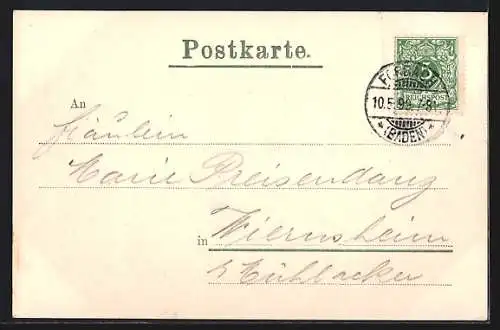 Postkarte.
5
REICHSPOST
10.5.99. 7-8N
(BADEN)
An
Fräulein
Marie Preisendanz
in Wiernsheim
Mühlacker